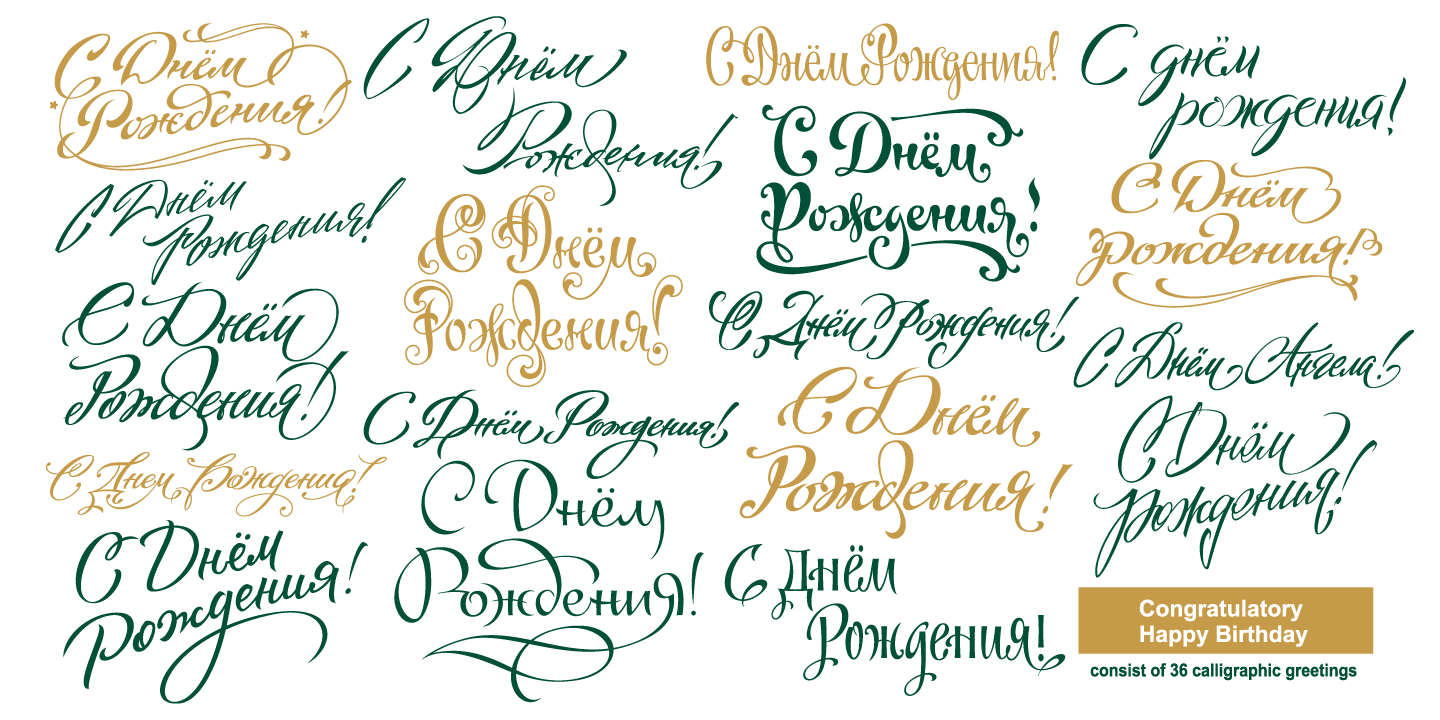 С Днём
Рождения!
С Днём
Рождения!
С Днём
Рождения!
С Днём
Рождения!
С Днем Рождения!
С Днём
Рождения!
С Днём
Рождения!
С Днём Рождения!
С Днём
Рождения!
С Днём Рождения!
С Днём
Рождения!
С Днём Рождения!
С Днём
Рождения!
С Днём
Рождения!
С днём
рождения!
С Днём
рождения!
С Днём Ангела!
С Днём
Рождения!
Congratulatory
Happy Birthday
consist of 36 calligraphic greetings